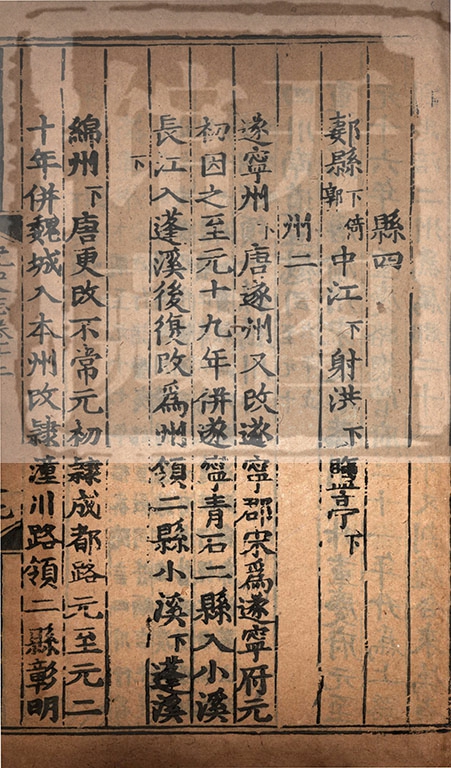 縣四
郪縣下倚郭中江下射洪下鹽亭下
州二
遂寧州下唐遂州又改遂寧郡宋爲遂寧府元
初因之至元十九年併遂寧青石二縣入小溪
長江入蓬溪後復改爲州領二縣小溪下蓬溪
下
綿州下唐更改不常元初隸成都路元至元二
十年併魏城入本州改隸潼川路領二縣彰明